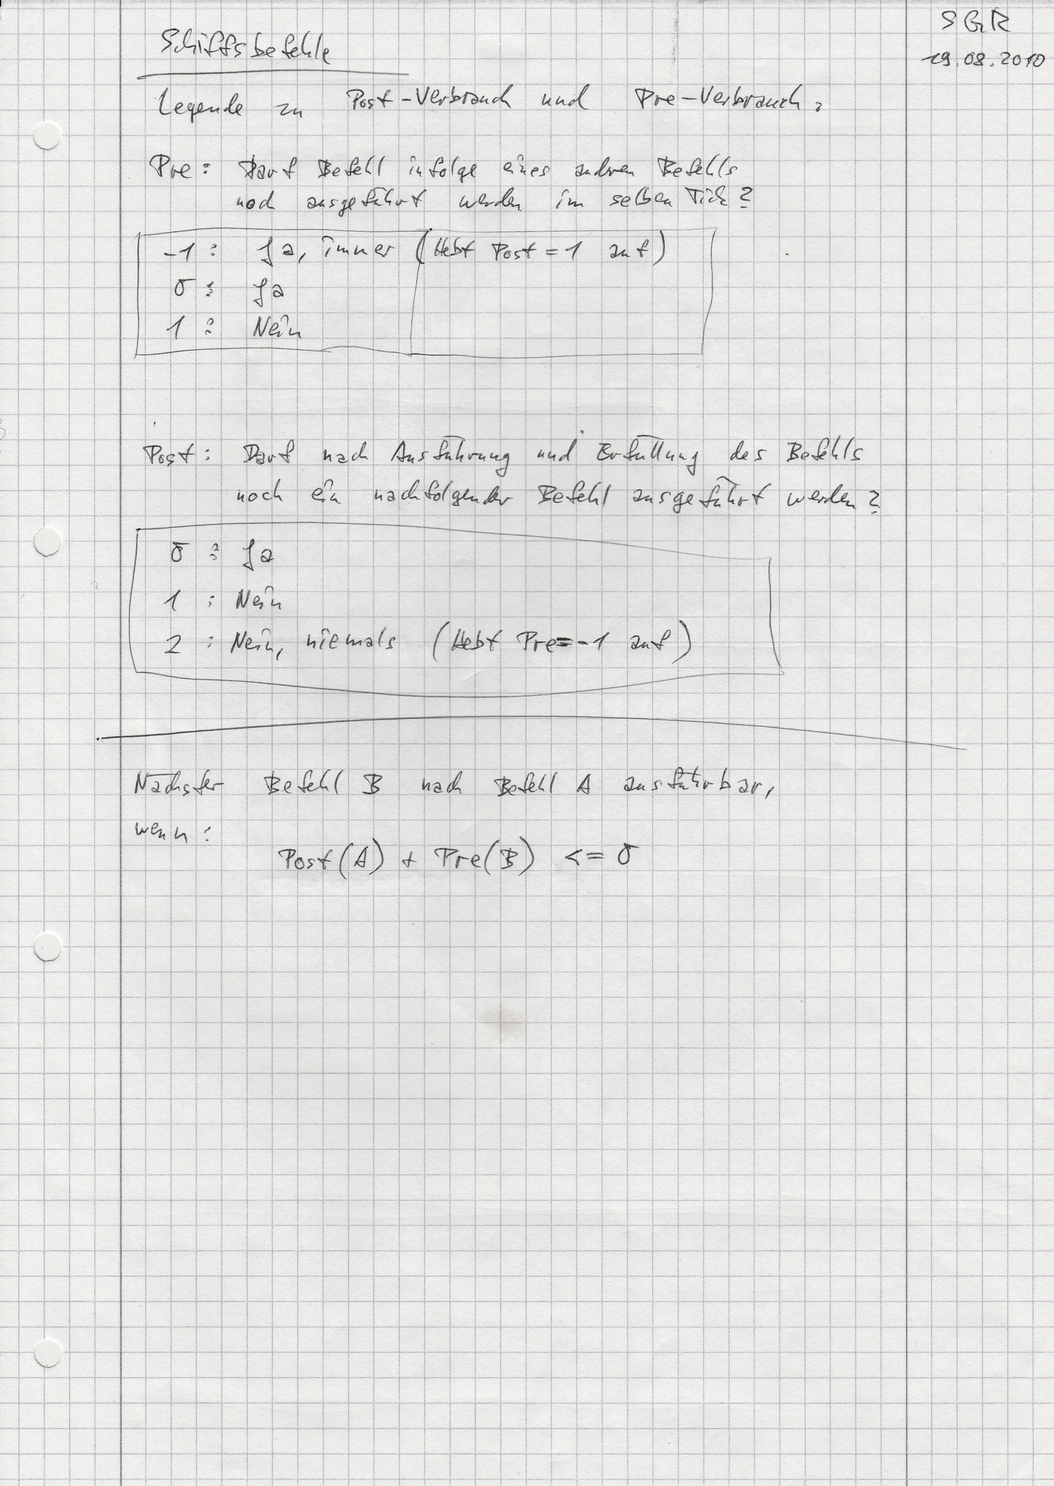 SGR
19.08.2010
Schiffsbefehle
Legende zu Post-Verbrauch und Pre-Verbrauch.
Pre: Darf Befehl infolge eines andren Befehls
noch ausgeführt werden im selben Tick?
-1: Ja, immer (Hebt Post=1 auf)
0: Ja
1: Nein
Post: Darf nach Ausführung und Erfüllung des Befehls
noch ein nachfolgender Befehl ausgeführt werden?
0: Ja
1: Nein
2: Nein, niemals (Hebt Pre=-1 auf)
Nächster Befehl B nach Befehl A ausführbar,
wenn:
Post(A) + Pre(B) <= 0